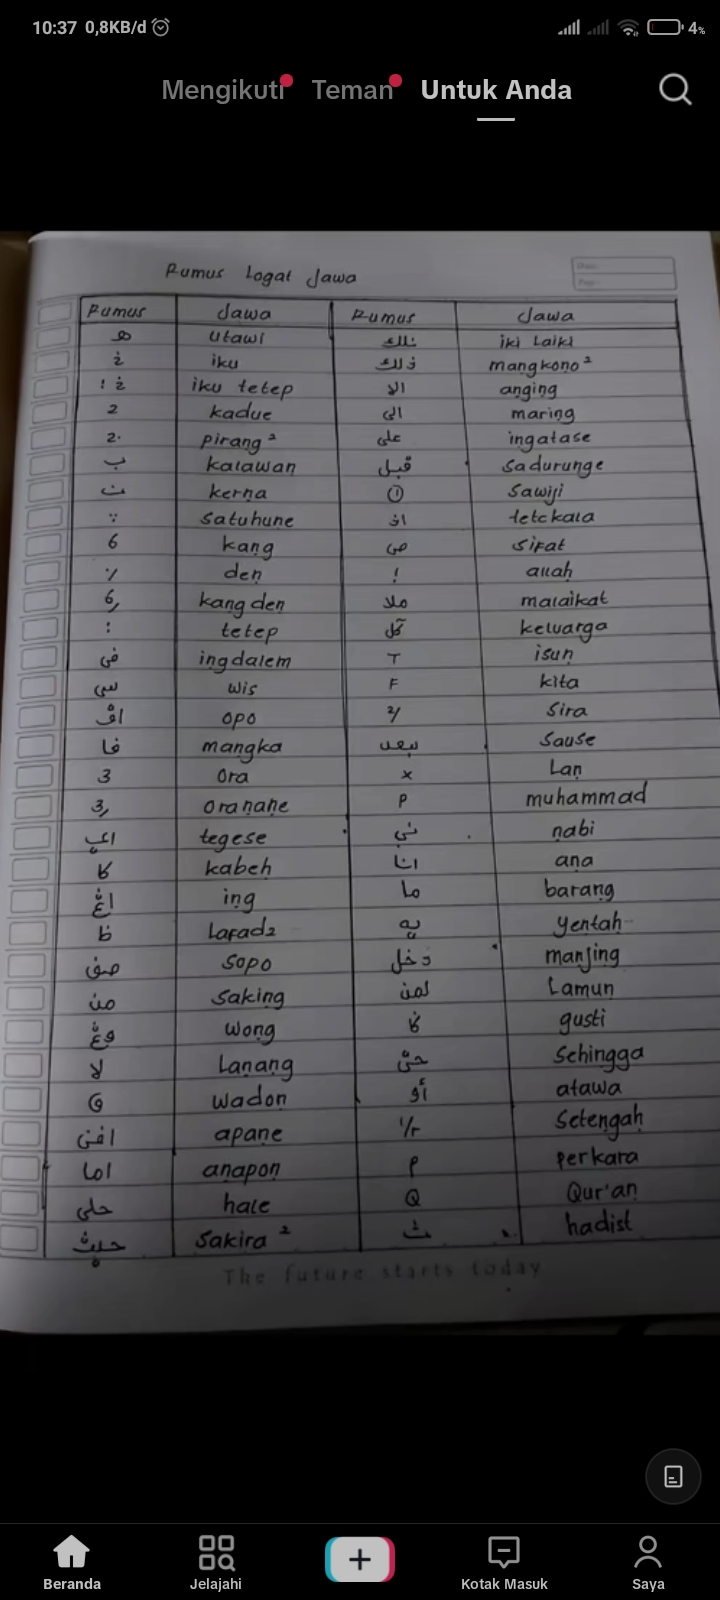 10:37 0,8KB/d
4%
Mengikuti Teman Untuk Anda
Rumus Logat Jawa
Rumus Jawa Rumus Jawa
ھ utawi تلك iki Laiki
خ iku ذلك mangkono²
خ ! iku tetep الا anging
2 kadue الى maring
2. pirang² على ingatase
ب kalawan قبل sadurunge
ت kerna ① Sawiji
satuhune اذ tetekala
6 kang ص sifat
٪ den ! allah
6, kang den ملا malaikat
: tetep كل keluarga
في ingdalem T isun
سي wis F kita
اڤ opo 2/ Sira
فا mangka بعد Sause
3 Ora x Lan
3, ora nane P muhammad
اي tegese نبي nabi
كا kabeh انا ana
اغ ing ما barang
ظ Lafadz يه yentah
صف sopo دخل manjing
من Saking لمن Lamun
وغ wong gusti
لا Lanang حتى Sehingga
wadon أو atawa
افني apane 1/2 Setengah
اما anapon P perkara
حلي hale Q Qur'an
حيث sakira² ث hadist
The future starts today
Beranda Jelajahi Kotak Masuk Saya